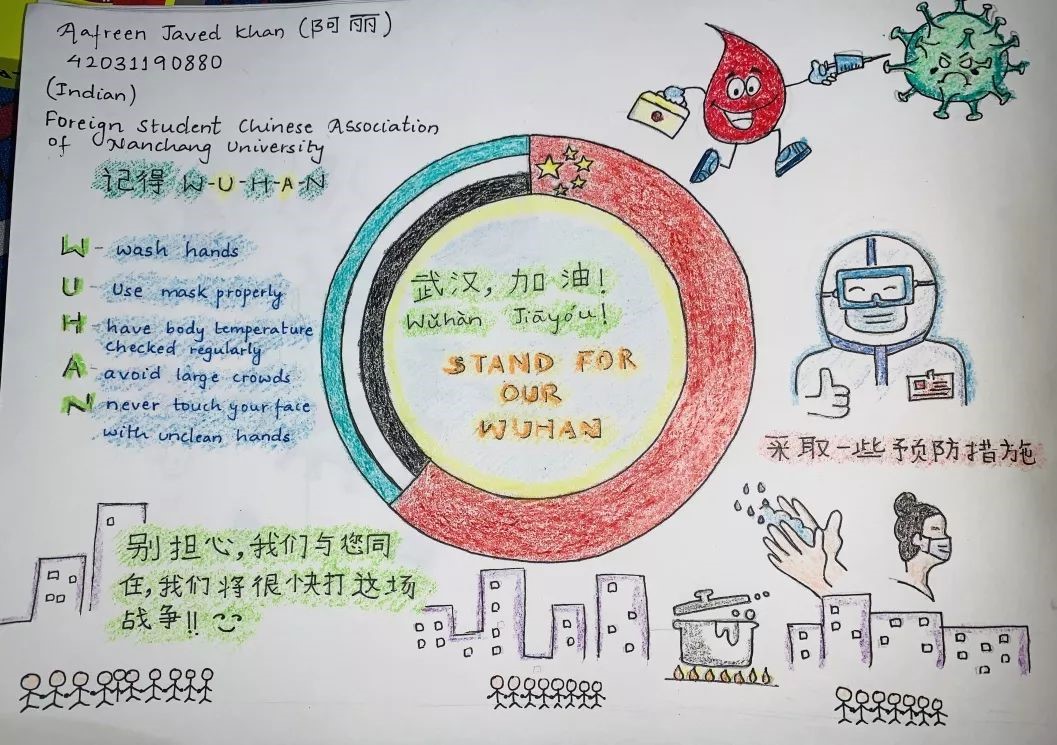 Aafreen Javed Khan (阿丽)
42031190880
(Indian)
Foreign Student Chinese Association
of Nanchang University
记得 W-U-H-A-N
W - wash hands
U - Use mask properly
H - have body temperature
checked regularly
A - avoid large crowds
N - never touch your face
with unclean hands
武汉, 加油!
Wǔhàn Jiāyóu!
STAND FOR
OUR
WUHAN
采取一些预防措施
别担心, 我们与您同
在, 我们将很快打这场
战争!!